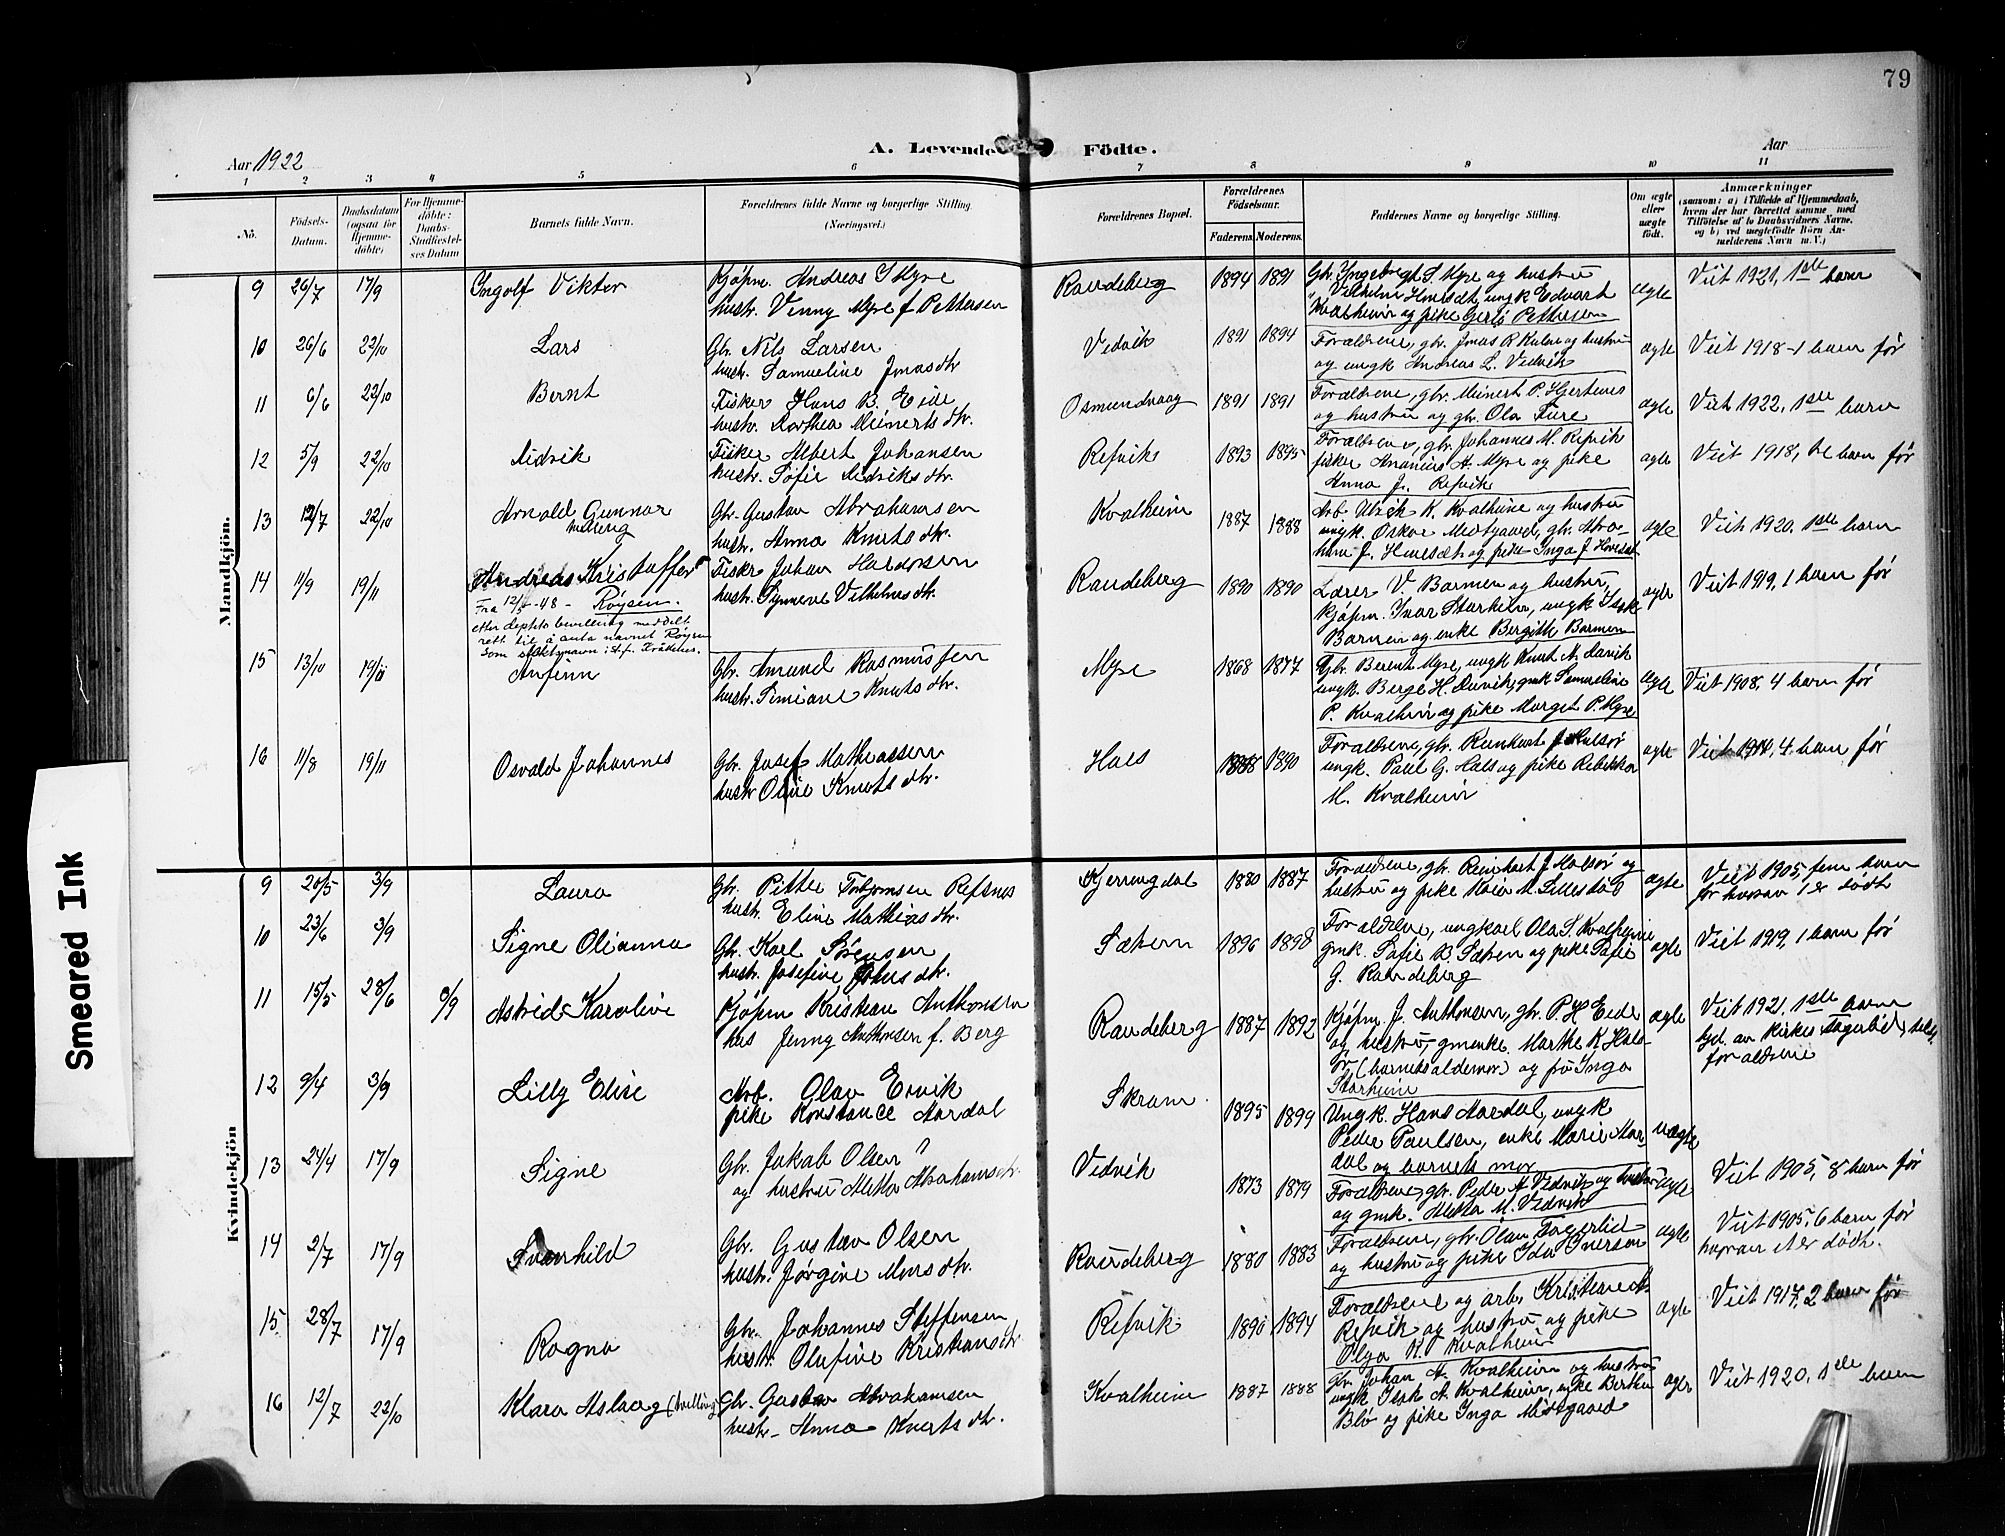 79
A. Levende Födte.
Aar 1922
Aar
1 2 3 4 5 6 7 8 9 10 11
Nö.
Födsels-Datum.
Daabsdatum (ogsaa for Hjemmedöbte)
For Hjemmedöbte: Daabs-Stadfæstelses Datum
Barnets fulde Navn.
Forældrenes fulde Navne og borgerlige Stilling. (Næringsvei.)
Forældrenes Bopæl.
Forældrenes Födselsaar.
Faderens. Moderens.
Faddernes Navne og borgerlige Stilling.
Om ægte eller uægte født.
Anmærkninger
(saasom: a) i Tilfælde af Hjemmedaab, hvem der har forrettet samme med Tilföielse af to Daabsvidners Navne, og b) ved uegtefödte Börn Anmelderens Navn m. V.)
Mandkjön.
9 26/7 17/9 Ingolf Viktor Kjøpm. Andreas I Myre
hustr. Venny Myre f Pettersen
Raudeberg 1894 1891 Gbr. Ingebrigt S. Myre og hustru
Vilhelm Hovsdt, ungk Edvart
Kvalheim og pike Gerd Pettersen
ægte Viet 1921, 1ste barn
10 26/6 22/10 Lars Gbr. Nils Larsen
hustr. Samueline Jonasdtr
Vedvik 1891 1894 Forældrene, gbr. Jonas R Kulen og hustru
og ungk Andreas L. Vedvik
ægte Viet 1918 - 1 barn før
11 6/6 22/10 Bernt Fisker Hans B. Eide
hustr. Dorthea Meinertsdtr.
Osmundvaag 1891 1891 Forældrene, gbr. Meinert P. Hjertenes
og hustru og gbr. Ola Fure
ægte Viet 1922, 1ste barn
12 5/9 22/10 Didrik Fisker Albert Johansen
hustr. Sofie Didriksdtr.
Refvik 1893 1895 Forældrene, gbr. Johannes M. Refvik
fisker Ananias A. Myre og pike
Anna J. Refvik
ægte Viet 1918, barn før
13 12/7 22/10 Arnold Gunnar
tvilling
Gbr. Gustav Abrahamsen
hustr. Anna Knutsdtr.
Kvalheim 1887 1888 Arb Ulrik K. Kvalheim og hustru
ungk. Oskar Midtgaard, gbr. Abra-
ham J. og pike Inga J
ægte Viet 1920, 1ste barn
14 11/9 19/11 Andreas Kristoffer
Fra 12/5-48 - Røysen.
etter depts bevilling meddelt
rett til å anta navnet Røysen
som slektsnavn
Fisker Johan Haldorsen
hustr. Synneve Vilhelmsdtr.
Raudeberg 1890 1890 Lærer V. Barmen og hustru,
kjøpm. Ivar Starheim, ungk Isak
Barmen og enke Bergitte Barmen
ægte Viet 1919, 1 barn før
15 13/10 19/11 Anfinn Gbr. Amund Rasmussen
hustr. Simiane Knutsdtr.
Myre 1868 1877 Gbr. Berent Myre, ungk Knut A. Larvik
ungk. Berge H. Durvik, gmk Samueline
P. Kvalheim og pike Margit P. Myre
ægte Viet 1908, 4 barn før
16 11/8 19/11 Osvald Johannes Gbr. Josef Mathiassen
hustr Oline Knutsdtr.
Hals 1888 1890 Forældrene, gbr. Reinhart J Halsør
ungk. Paul G. Hals og pike Rebekka
M. Kvalheim
ægte Viet 1910, 4 barn før
Kvindekjön
9 20/5 3/9 Laura Gbr. Pitter Torbjørnsen Refsnes
hustr. Eline Mathiasdtr.
Kjerringdal 1880 1887 Forældrene, gbr. Reinhart J Halsør og
hustru og pike Maia M. Lillestøl
ægte Viet 1905, fem barn
før hvorav 1 er dødt
10 23/6 3/9 Signe Olianna Gbr. Karl Sørensen
hustr. Josefine Johnsdtr.
Sætren 1896 1898 Forældrene, ungkarl Ola S. Kvalheim
gmk. Sofie B. Sætren og pike Sofie
G. Raudeberg
ægte Viet 1919, 1 barn før
11 15/5 28/6 8/9 Astrid Karoline Kjøpm Kristian Anthonsen
hus Jenny Anthonsen f. Berg
Raudeberg 1887 1892 Kjøpm. J. Anthonsen, gbr. P. H Eide
og hustru, gmenke Marthe K Hals-
ør (barnets oldemor) og frø Inga
Starheim
ægte Viet 1921, 1ste barn
hjd. av kirkes.
forældrene
12 9/4 3/9 Lilly Elise Arb. Olav Ervik
pike Konstance Aardal
Skram 1895 1899 Ungk. Hans Aardal, ungk
Peder Paulsen, enke Marie Aar-
dal og barnets mor
uægte
13 24/4 17/9 Signe Gbr. Jakob Olsen
og hustru Metta Abrahamsdtr
Vedvik 1873 1879 Forældrene, gbr. Peder A Vedvik og hustru
og gmk. Metta M. Vedvik
ægte Viet 1905, 8 barn før
14 2/7 17/9 Svanhild Gbr. Gustav Olsen
hustr. Jørgine Monsdtr.
Raudeberg 1880 1883 Forældrene, gbr. Olav Fagerlid
og hustru og pike Ida Iversen
ægte Viet 1905, 6 barn før
hvorav et er dødt.
15 28/7 17/9 Ragna Gbr. Johannes Steffensen
hustr. Olufine Kristiansdtr
Refvik 1890 1894 Forældrene og arb. Kristian A
Refvik og hustru og pike
Olga K. Kvalheim
ægte Viet 1917, 2 barn før
16 12/7 22/10 Klara Aslaug (tvilling) Gbr. Gustav Abrahamsen
hustr. Anna Knutsdtr.
Kvalheim 1887 1888 Gbr. Johan A. Kvalheim og hustru
ungk Isak A. Kvalheim, enke Berthe
Blø og pike Inga Midtgaard
ægte Viet 1920, 1ste barn
Smeared Ink